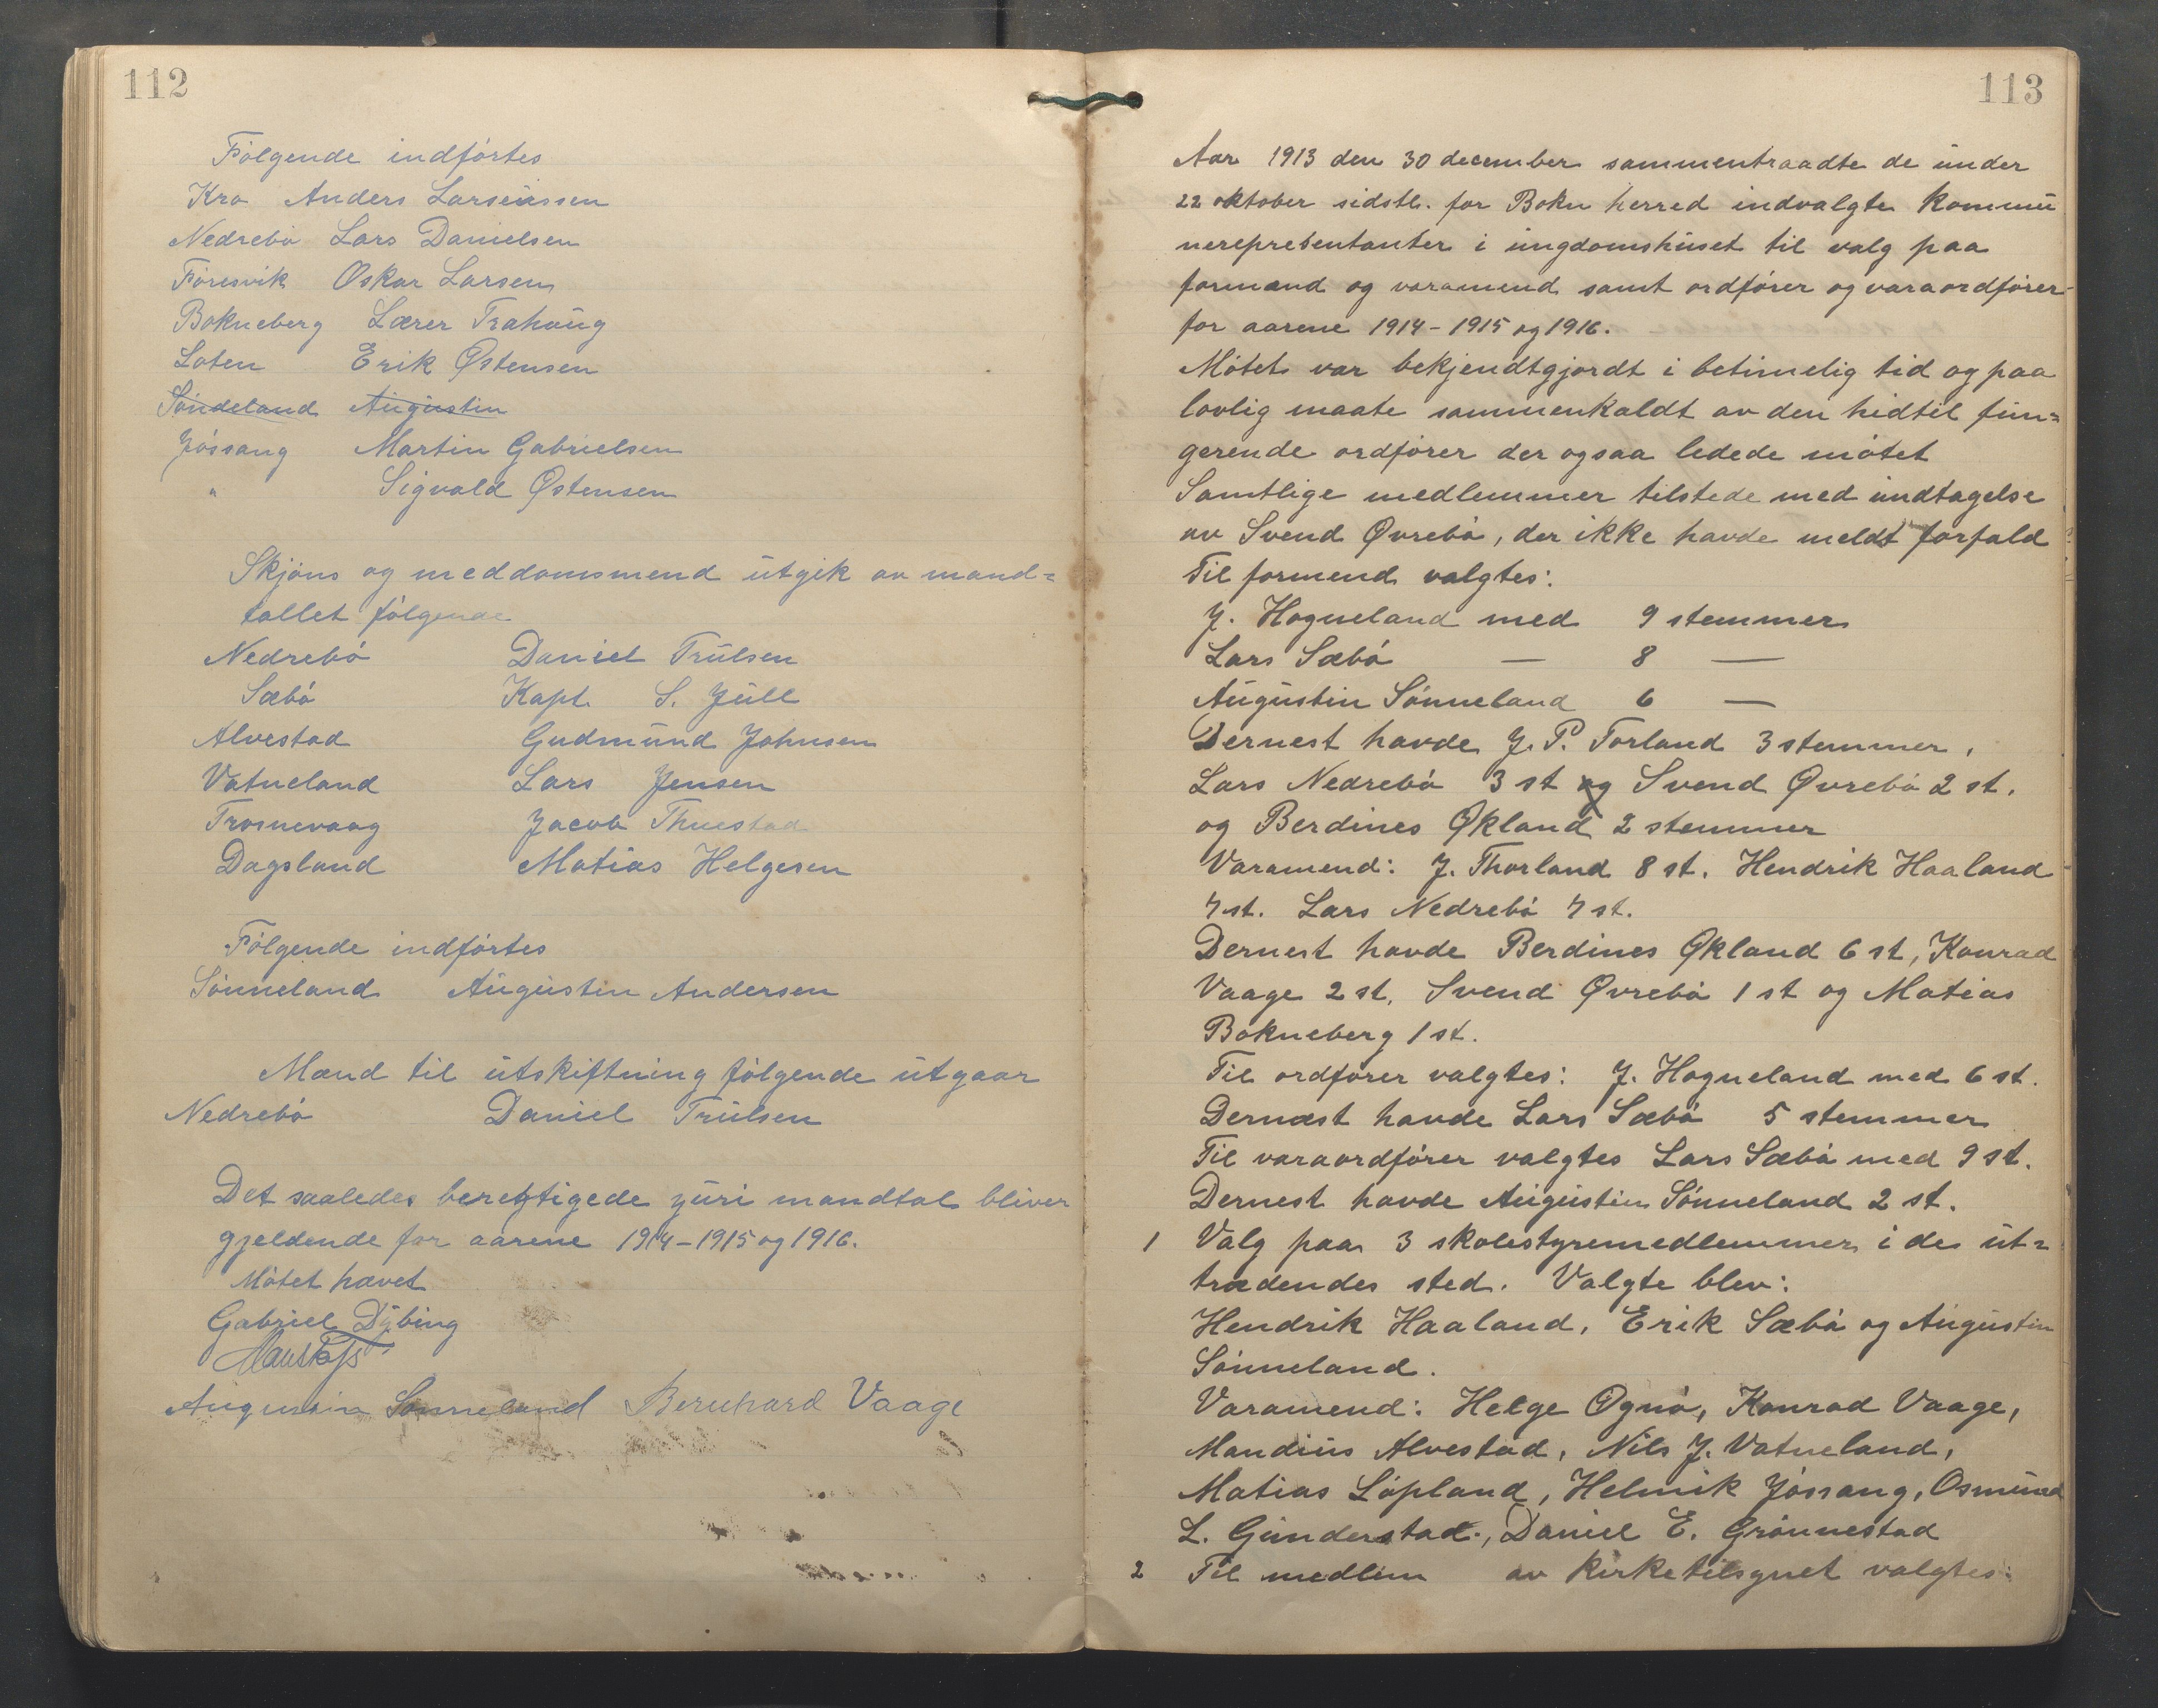 112
Følgende indførtes
Kro Anders Larseussen
Nedrebø Lars Danielsen
Føresvik Oskar Larsen
Bokneberg Lærer Trahaug
Loten Erik Østensen
Søndeland Augustin
Jøssang Martin Gabrielsen
" Sigvald Østensen
Skjøns og meddomsmend utgik av mand=
tallet følgende
Nedrebø Daniel Trulsen
Sæbø Kapt. S. Jull
Alvestad Gudmund Johnsen
Vatneland Lars Jensen
Trosnevaag Jacob Thuestad
Dagsland Matias Helgesen
Følgende indførtes
Sønneland Augustin Andersen
Mænd til utskiftning følgende utgaar
Nedrebø Daniel Trulsen
Det saaledes berettigede juri mandtal bliver
gjeldende for aarene 1914-1915 og 1916.
Møtet hævet
Gabriel Dybing
Augustin Sønneland Bernhard Vaage
113
Aar 1913 den 30 december sammentraadte de under
22 oktober sidstl. for Bokn herred indvalgte kommu
nerepresentanter i ungdomshuset til valg paa
formænd og varamend samt ordfører og varaordfører
for aarene 1914-1915 og 1916.
Møtet var bekjendtgjordt i betimelig tid og paa
lovlig maate sammenkaldt av den hidtil fun=
gerende ordfører der ogsaa ledede møtet
Samtlige medlemmer tilstede med undtagelse
av Svend Øvrebø, der ikke havde meldt forfald
Til formend valgtes:
J. Hogneland med 9 stemmer
Lars Sæbø — 8 —
Augustin Sønneland 6 —
Dernest havde J. P. Torland 3 stemmer,
Lars Nedrebø 3 st og Svend Øvrebø 2 st.
og Berdines Økland 2 stemmer
Varamend: J. Thorland 8 st. Hendrik Haaland
7 st. Lars Nedrebø 7 st.
Dernest havde Berdines Økland 6 st, Konrad
Vaage 2 st, Svend Øvrebø 1 st og Matias
Bokneberg 1 st.
Til ordfører valgtes: J. Hogneland med 6 st.
Dernæst havde Lars Sæbø 5 stemmer
Til varaordfører valgtes Lars Sæbø med 9 st.
Dernest havde Augustin Sønneland 2 st.
1 Valg paa 3 skolestyremedlemmer i de ut=
trædendes sted. Valgte blev:
Hendrik Haaland, Erik Sæbø og Augustin
Sønneland.
Varamend: Helge Ognø, Konrad Vaage,
Mandius Alvestad, Nils J. Vatneland,
Matias Løpland, Helmik Jøssang, Osmund
L. Gunderstad, Daniel E. Grønnestad
2 Til medlem av kirketilsynet valgtes: